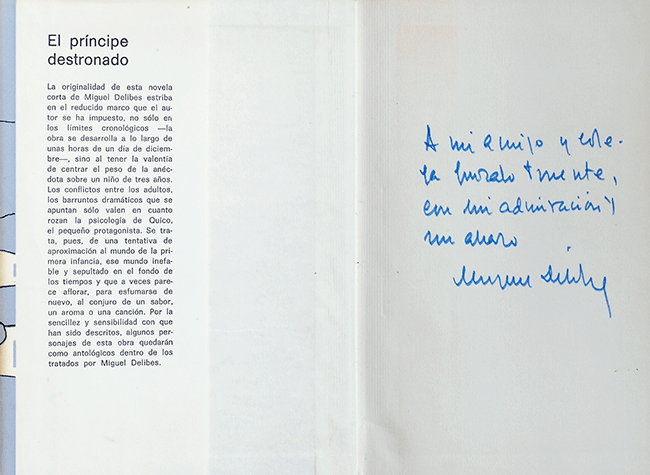 El príncipe
destronado
La originalidad de esta novela
corta de Miguel Delibes estriba
en el reducido marco que el au-
tor se ha impuesto, no sólo en
los límites cronológicos —la
obra se desarrolla a lo largo de
unas horas de un día de diciem-
bre—, sino al tener la valentía
de centrar el peso de la anéc-
dota sobre un niño de tres años.
Los conflictos entre los adultos,
los barruntos dramáticos que se
apuntan sólo valen en cuanto
rozan la psicología de Quico,
el pequeño protagonista. Se tra-
ta, pues, de una tentativa de
aproximación al mundo de la pri-
mera infancia, ese mundo inefa-
ble y sepultado en el fondo de
los tiempos y que a veces pare-
ce aflorar, para esfumarse de
nuevo, al conjuro de un sabor,
un aroma o una canción. Por la
sencillez y sensibilidad con que
han sido descritos, algunos per-
sonajes de esta obra quedarán
como antológicos dentro de los
tratados por Miguel Delibes.
A mi amigo y cole-
ga
con mi admiración y
un abrazo
Miguel Delibes